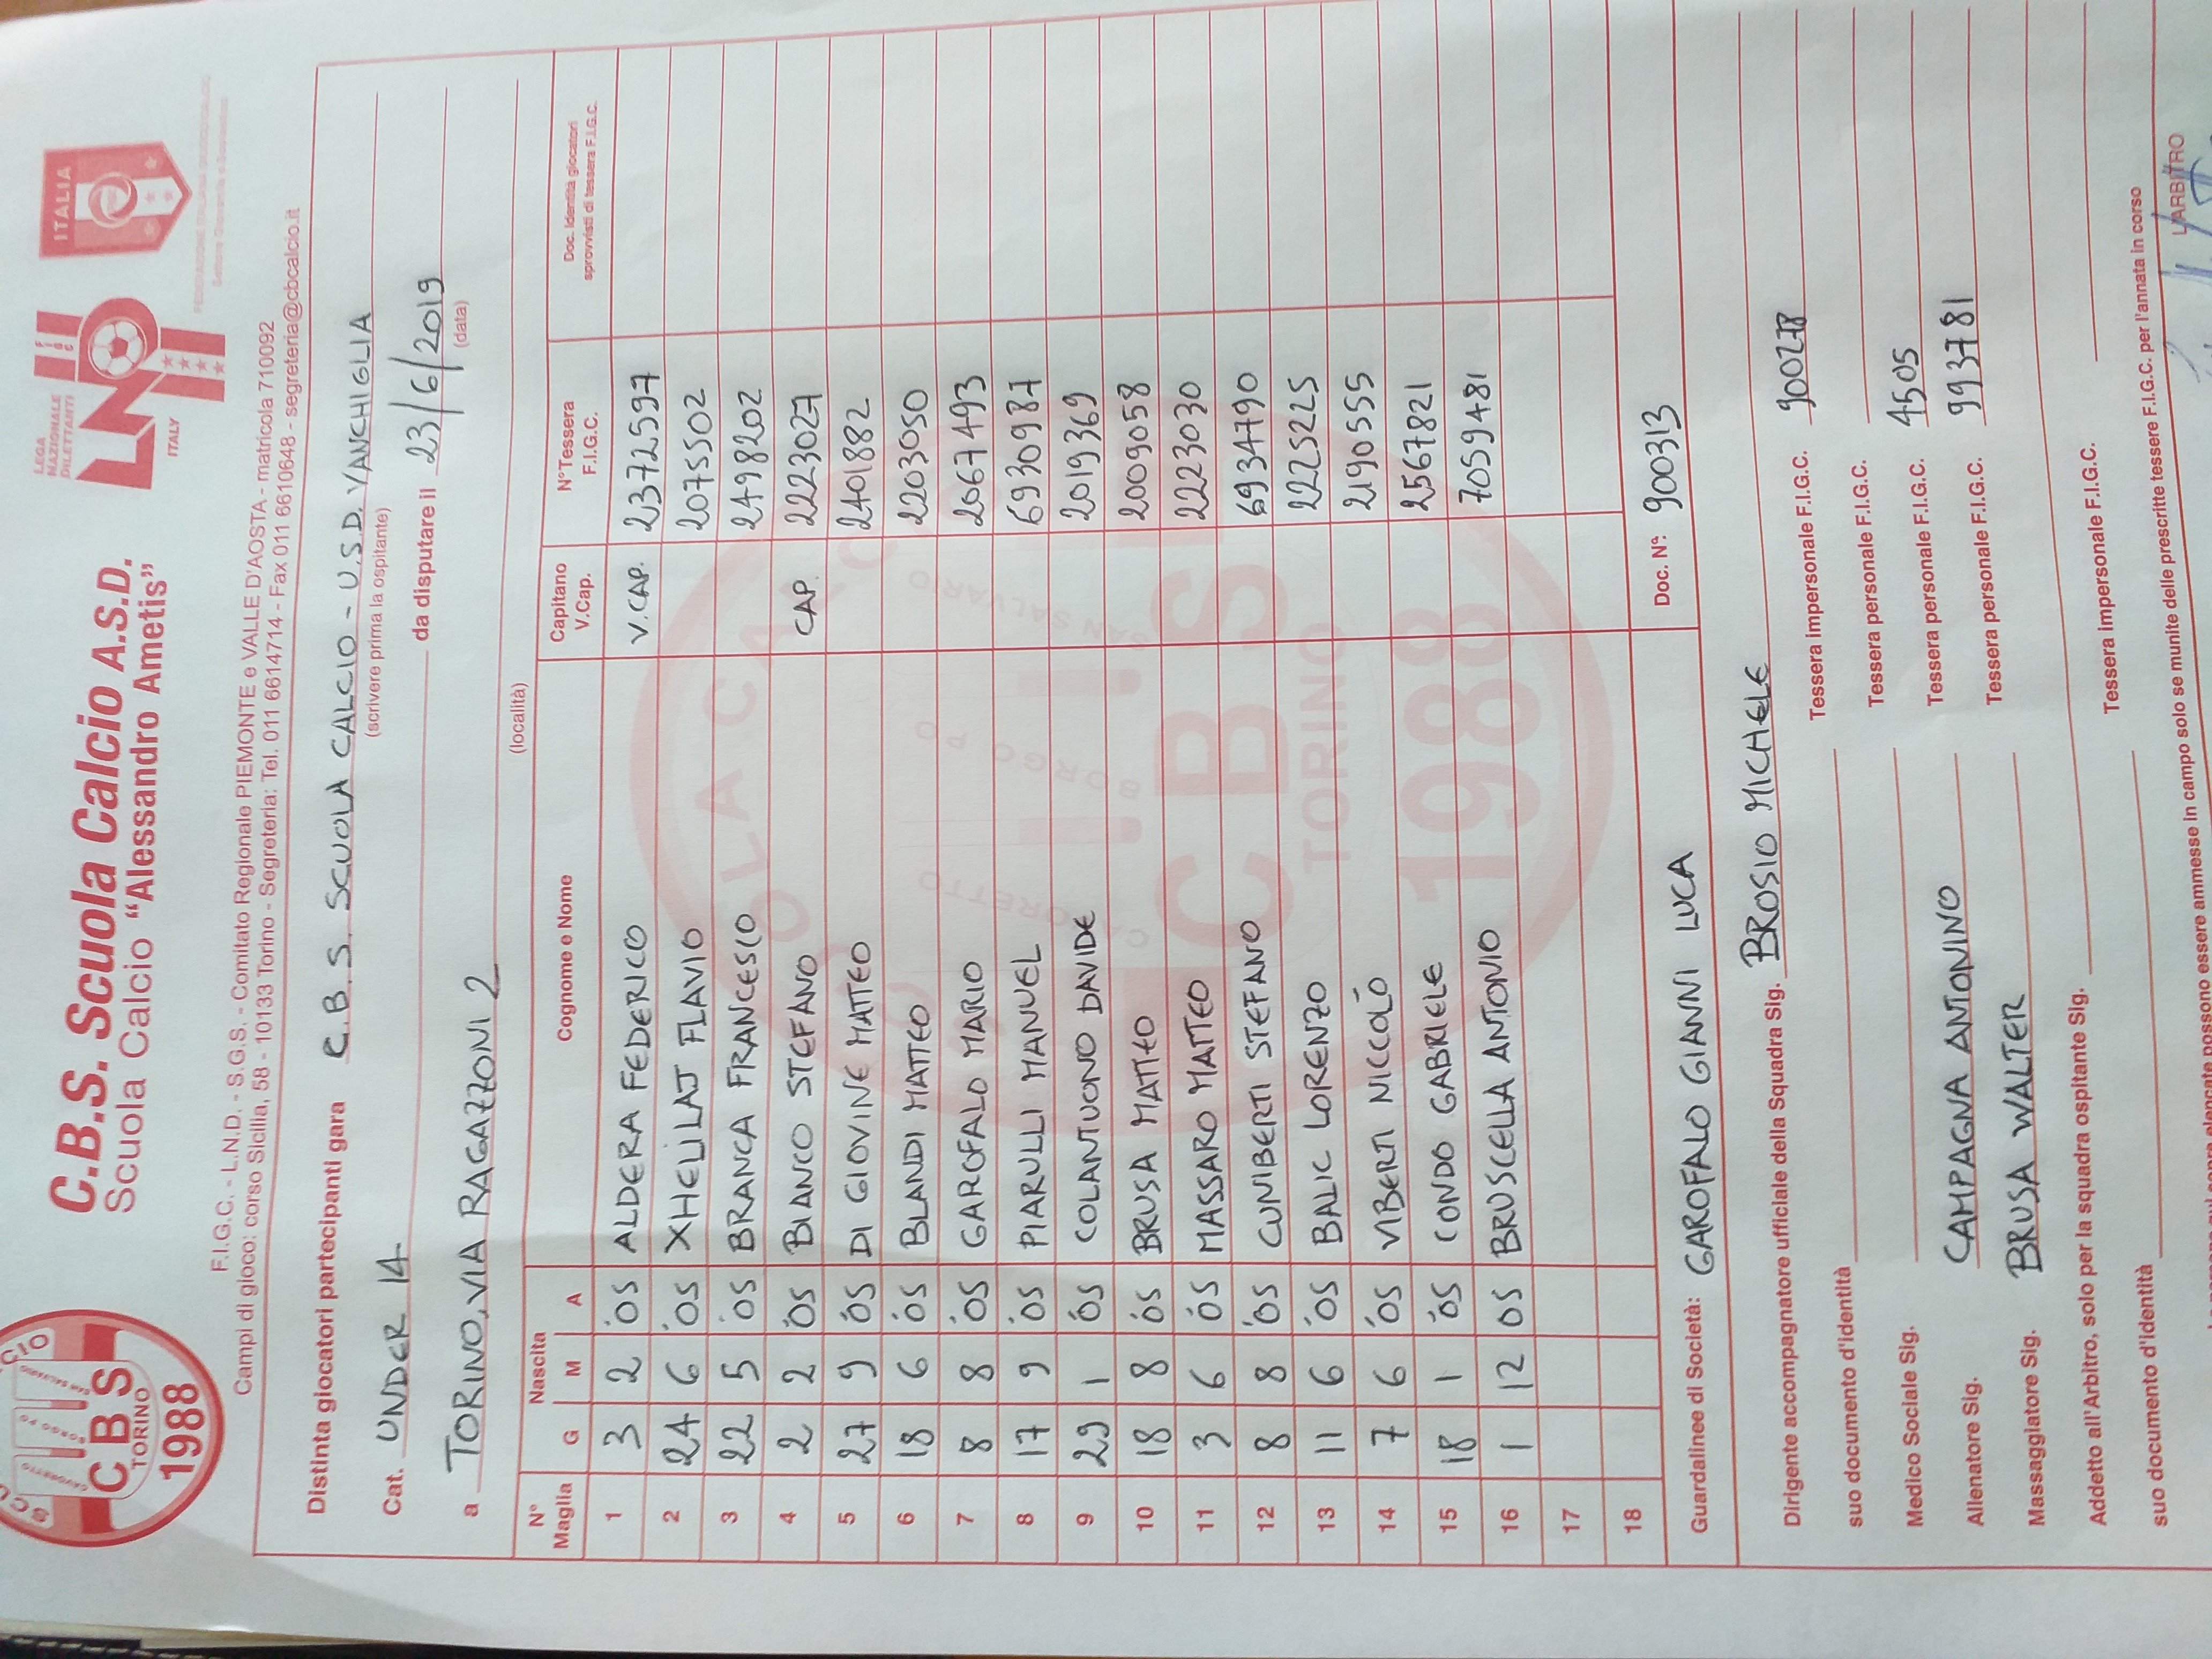 C.B.S. Scuola Calcio A.S.D.
Scuola Calcio “Alessandro Ametis”
CBS
TORINO
1988
LEGA
NAZIONALE
DILETTANTI
LND
ITALY
ITALIA
F.I.G.C. - L.N.D. - S.G.S. - Comitato Regionale PIEMONTE e VALLE D'AOSTA - matricola 710092
Campi di gioco: corso Sicilia, 58 - 10133 Torino - Segreteria: Tel. 011 6614714 - Fax 011 6610648 - segreteria@cbcalcio.it
Distinta giocatori partecipanti gara C.B.S. SCUOLA CALCIO - U.S.D. VANCHIGLIA
(scrivere prima la ospitante)
Cat. UNDER 14 da disputare il 23/6/2019
(data)
a TORINO, VIA RAGAZZONI 2
(località)
N° Maglia Nascita G M A Cognome e Nome Capitano V.Cap. N°Tessera F.I.G.C. Doc. identità giocatori sprovvisti di tessera F.I.G.C.
1 3 2 '05 ALDERA FEDERICO V.CAP. 2372597
2 24 6 '05 XHELILAJ FLAVIO 2075502
3 22 5 '05 BRANCA FRANCESCO 2498202
4 2 2 '05 BIANCO STEFANO CAP. 2223027
5 27 9 '05 DI GIOVINE MATTEO 2401882
6 18 6 '05 BLANDI MATTEO 2203050
7 8 8 '05 GAROFALO MARIO 2067493
8 17 9 '05 PIARULLI MANUEL 6930987
9 29 1 '05 COLANTUONO DAVIDE 2019369
10 18 8 '05 BRUSA MATTEO 2009058
11 3 6 '05 MASSARO MATTEO 2223030
12 8 8 '05 CUNIBERTI STEFANO 6934790
13 11 6 '05 BALIC LORENZO 2225225
14 7 6 '05 VIBERTI NICCOLÒ 2190555
15 18 1 '05 CONDO GABRIELE 2567821
16 1 12 05 BRUSCELLA ANTONIO 7059481
17
18
Guardalinee di Società: GAROFALO GIANNI LUCA Doc. N°: 900313
Dirigente accompagnatore ufficiale della Squadra Sig. BROSIO MICHELE
Tessera impersonale F.I.G.C. 900278
suo documento d'identità Tessera personale F.I.G.C.
Medico Sociale Sig. Tessera personale F.I.G.C. 4505
Allenatore Sig. CAMPAGNA ANTONINO Tessera personale F.I.G.C. 993781
Massaggiatore Sig. BRUSA WALTER
Addetto all'Arbitro, solo per la squadra ospitante Sig. Tessera impersonale F.I.G.C.
suo documento d'identità
possono essere ammesse in campo solo se munite delle prescritte tessere F.I.G.C. per l'annata in corso
L'ARBITRO